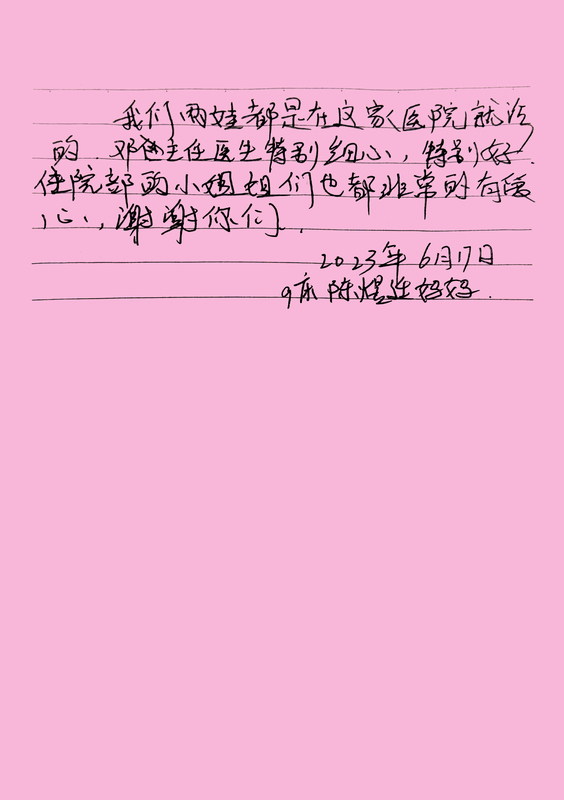 我们两娃都是在这家医院就诊
的.邓主任医生特别细心,特别好.
住院部的小姐姐们也都非常的有爱
心,谢谢你们.
2023年6月17日
9床 陈煜 妈妈.